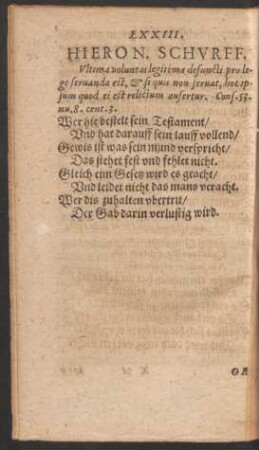 LXXIII.
HIERON. SCHVRFF.
Vltima voluntas legitima defuncti pro le
ge seruanda est, & si quis non seruat, hoc ip
sum quod ei est relictum aufertur. Cons. 53.
nu. 8. cent. 3.
Wer hie bestelt sein Testament/
Vnd hat darauff sein lauff vollend/
Gewis ist was sein mund verspricht/
Das stehet fest vnd fehlet nicht.
Gleich ein Gesetz wird es geacht/
Vnd leidet nicht das mans veracht.
Wer dis zuhalten vbertrit/
Der Gab darin verlustig wird.
OR